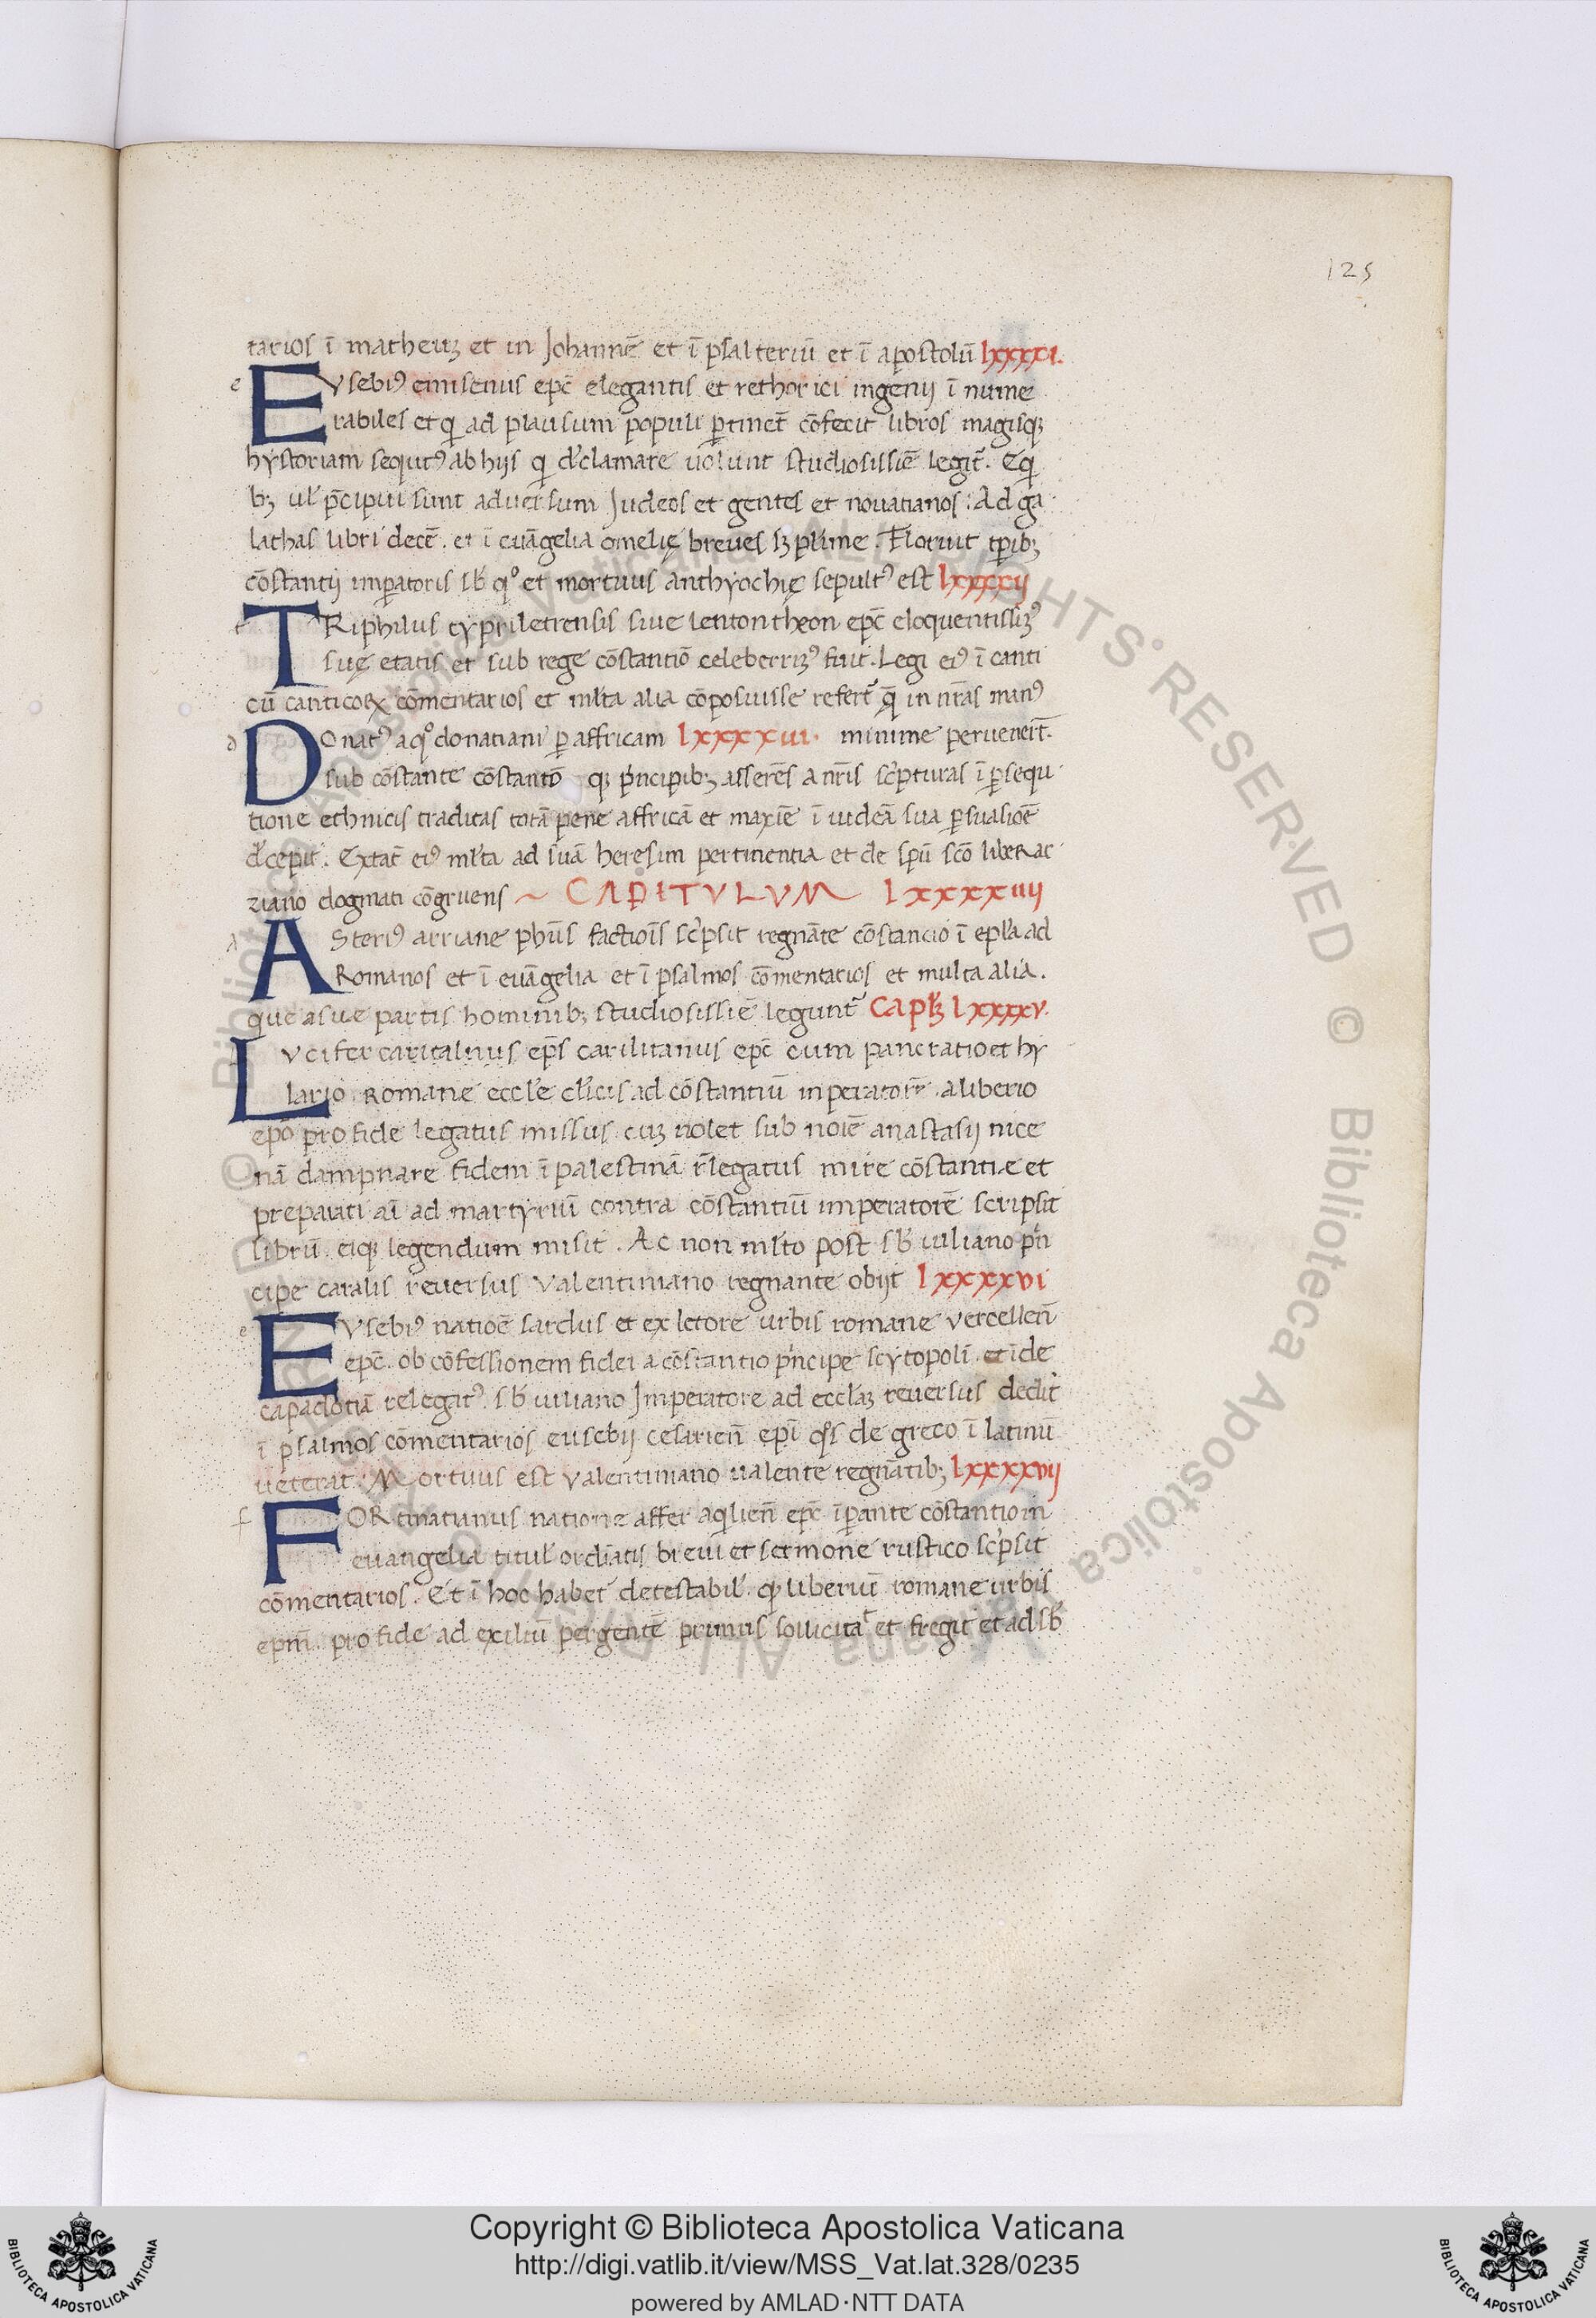 125
tarios ī matheuꝫ et in Johannē et ī psalteriū et ī apostolū lxxxxi.
e EVsebiꝰ emisenus epc̄ elegantis et rethorici ingenij ī nume
rabiles et qi ad plausum populi ꝑtinet̄ cōfecit libros magisqꝫ
hystoriam sequtꝰ ab hijs qi declamare uolunt studiosissīe legit̄. Eqi
bꝫ ul p̄cipui sunt aduersum Judeos et gentes et nouatianos: Ad ga
lathas libri decē. et ī euāgelia omelię breues sꝫ plīme. Floruit tꝑibꝫ
cōstantij imꝑatoris sb̄ qo et mortuus anthyochię sepultꝰ est lxxxxij
t TRiphilus cypriletrensis siue lentontheon epc̄ eloquentissīꝰ
suę etatis et sub rege cōstantiō celeberrīꝰ fuit. Legi eiꝰ ī canti
cū canticoꝝ cōmentarios et ml̄ta alia cōposuisse refert̄ q̄ in nr̄as manꝰ
d DOnatꝰ a qo donatiani ꝑ affricam lxxxxiii. minime peruenerīt.
sub cōstante cōstantō qꝫ pi̇ncipibꝫ asserēs a nr̄is sc̓pturas ī ꝑsequ
tione ethnicis traditas totā pene affricā et maxīe ī iudeā sua ꝑsuasiōe
d̓cepit. Extāt eiꝰ ml̄ta ad suā heresim pertinentia et de spū sc̄o liber ar
ziano dogmati cōgruens ~ CAPITVLVM lxxxxiiij
A ASteriꝰ arriane phūs factiōis sc̓psit regnāte cōstancio ī epl̄a ad
Romanos et ī euāgelia et ī psalmos cōmentarios et multa alia.
que a sue partis hominibꝫ studiosissīe legunt̄ Capl̄ꝫ lxxxxv.
l LVcifer caritalnus ep̄s carilitanus epc̄ cum pancratio et hy
lario Romane eccl̄e cl̓icis ad cōstantiū inperatorē. a liberio
epō pro fide legatus missus. cuꝫ nolet sub noīe anastasij nice
nā dampnare fidem ī palestinā r̄legatus mire cōstantiæ et
preparati aī ad martyriū contra cōstantiū imperatorē scripsit
librū. eiqꝫ legendum misit. Ac non ml̄to post sb̄ iuliano pi̇n
cipe caralis reuersus Valentiniano regnante obijt lxxxxvi
e EVsebiꝰ natiōe sardus et ex letore urbis romane vercellen̄
epc̄. ob cōfessionem fidei a cōstantio pi̇ncipe scytopolī. et īde
capadotiā relegatꝰ. sb̄ iuliano Jmperatore ad eccl̄aꝫ reuersus dedit
ī psalmos cōmentarios eusebij cesarien̄ epī qi̇s de greco ī latinū
ueterat. Mortuus est Valentiniano ualente regnātibꝫ lxxxxvij
f FORtinatunus natione affer aqi̇lien̄ epc̄ īꝑante cōstantio in
euangelia titul̄ ordīatis breui et sermone rustico sc̓psit
cōmentarios. Et ī hoc habet̄ detestabil̄. qꝫ liberiū romane urbis
epm̄. pro fide ad exiliū pergentē primus sollicitat et fregit et ad sb̄
© Biblioteca Apostolica Vaticana ALL RIGHTS RESERVED
Copyright © Biblioteca Apostolica Vaticana
http://digi.vatlib.it/view/MSS_Vat.lat.328/0235
powered by AMLAD·NTT DATA
BIBLIOTECA APOSTOLICA VATICANA
BIBLIOTECA APOSTOLICA VATICANA